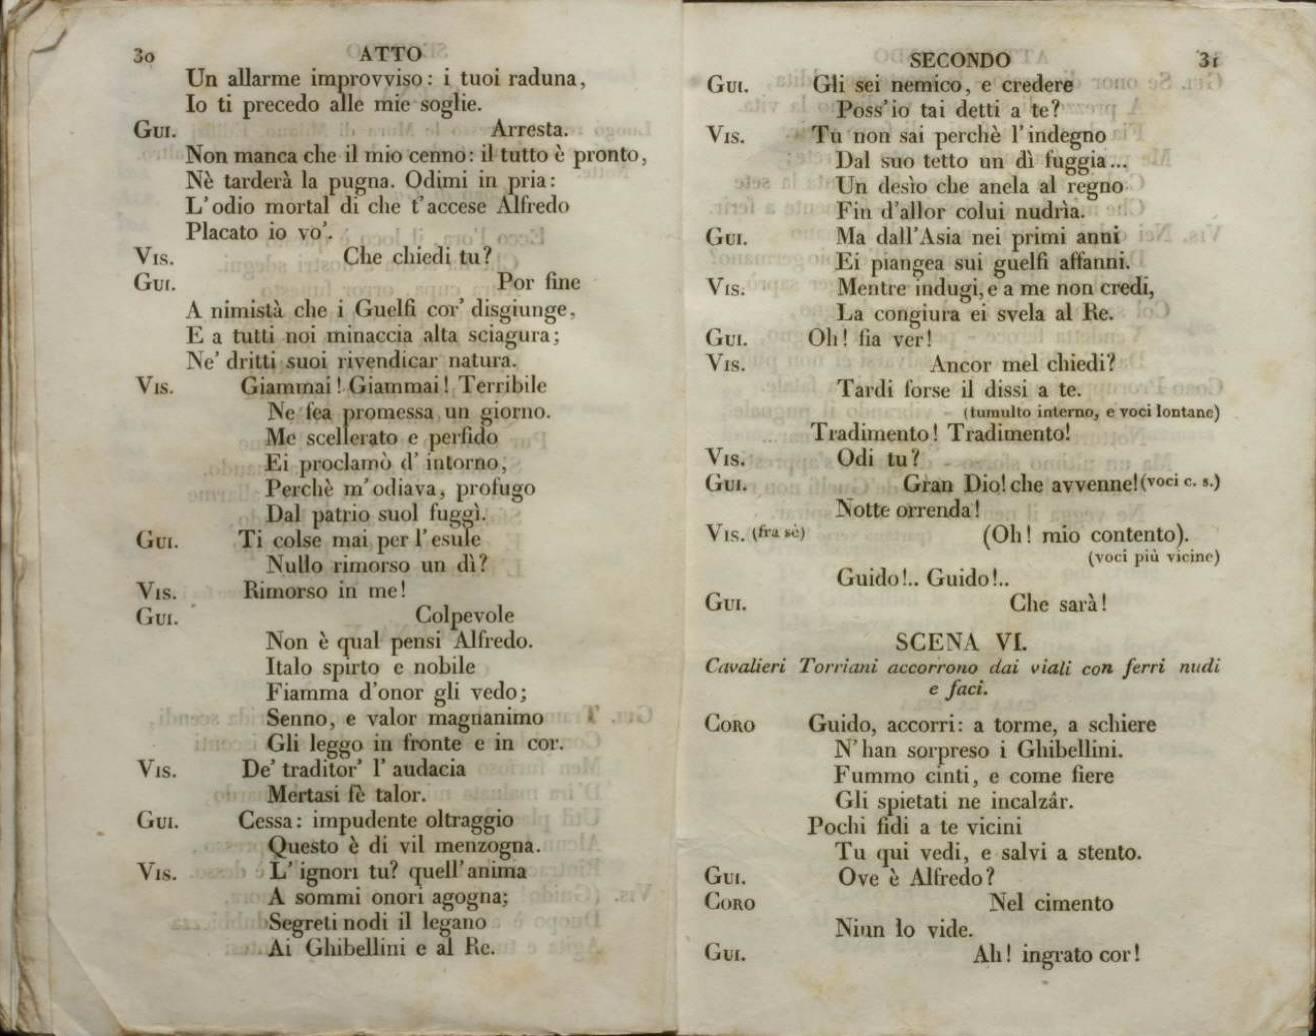 30 ATTO
Un allarme improvviso: i tuoi raduna,
Io ti precedo alle mie soglie.
GUI. Arresta.
Non manca che il mio cenno: il tutto è pronto,
Nè tarderà la pugna. Odimi in pria:
L'odio mortal di che t'accese Alfredo
Placato io vo'.
VIS. Che chiedi tu?
GUI. Por fine
A nimistà che i Guelfi cor' disgiunge,
E a tutti noi minaccia alta sciagura;
Ne' dritti suoi rivendicar natura.
VIS. Giammai! Giammai! Terribile
Ne fea promessa un giorno.
Me scellerato e perfido
Ei proclamò d'intorno,
Perchè m'odiava, profugo
Dal patrio suol fuggì.
GUI. Ti colse mai per l'esule
Nullo rimorso un dì?
VIS. Rimorso in me!
GUI. Colpevole
Non è qual pensi Alfredo.
Italo spirto e nobile
Fiamma d'onor gli vedo;
Senno, e valor magnanimo
Gli leggo in fronte e in cor.
VIS. De' traditor' l'audacia
Mertasi fè talor.
GUI. Cessa: impudente oltraggio
Questo è di vil menzogna.
VIS. L'ignori tu? quell'anima
A sommi onori agogna;
Segreti nodi il legano
Ai Ghibellini e al Re.
SECONDO 31
GUI. Gli sei nemico, e credere
Poss'io tai detti a te?
VIS. Tu non sai perchè l'indegno
Dal suo tetto un dì fuggia...
Un desìo che anela al regno
Fin d'allor colui nudrìa.
GUI. Ma dall'Asia nei primi anni
Ei piangea sui guelfi affanni.
VIS. Mentre indugi, e a me non credi,
La congiura ei svela al Re.
GUI. Oh! fia ver!
VIS. Ancor mel chiedi?
Tardi forse il dissi a te.
(tumulto interno, e voci lontane)
Tradimento! Tradimento!
VIS. Odi tu?
GUI. Gran Dio! che avvenne! (voci c. s.)
Notte orrenda!
VIS. (fra sè) (Oh! mio contento).
(voci più vicine)
Guido!.. Guido!..
GUI. Che sarà!
SCENA VI.
Cavalieri Torriani accorrono dai viali con ferri nudi
e faci.
CORO Guido, accorri: a torme, a schiere
N'han sorpreso i Ghibellini.
Fummo cinti, e come fiere
Gli spietati ne incalzâr.
Pochi fidi a te vicini
Tu qui vedi, e salvi a stento.
GUI. Ove è Alfredo?
CORO Nel cimento
Niun lo vide.
GUI. Ah! ingrato cor!